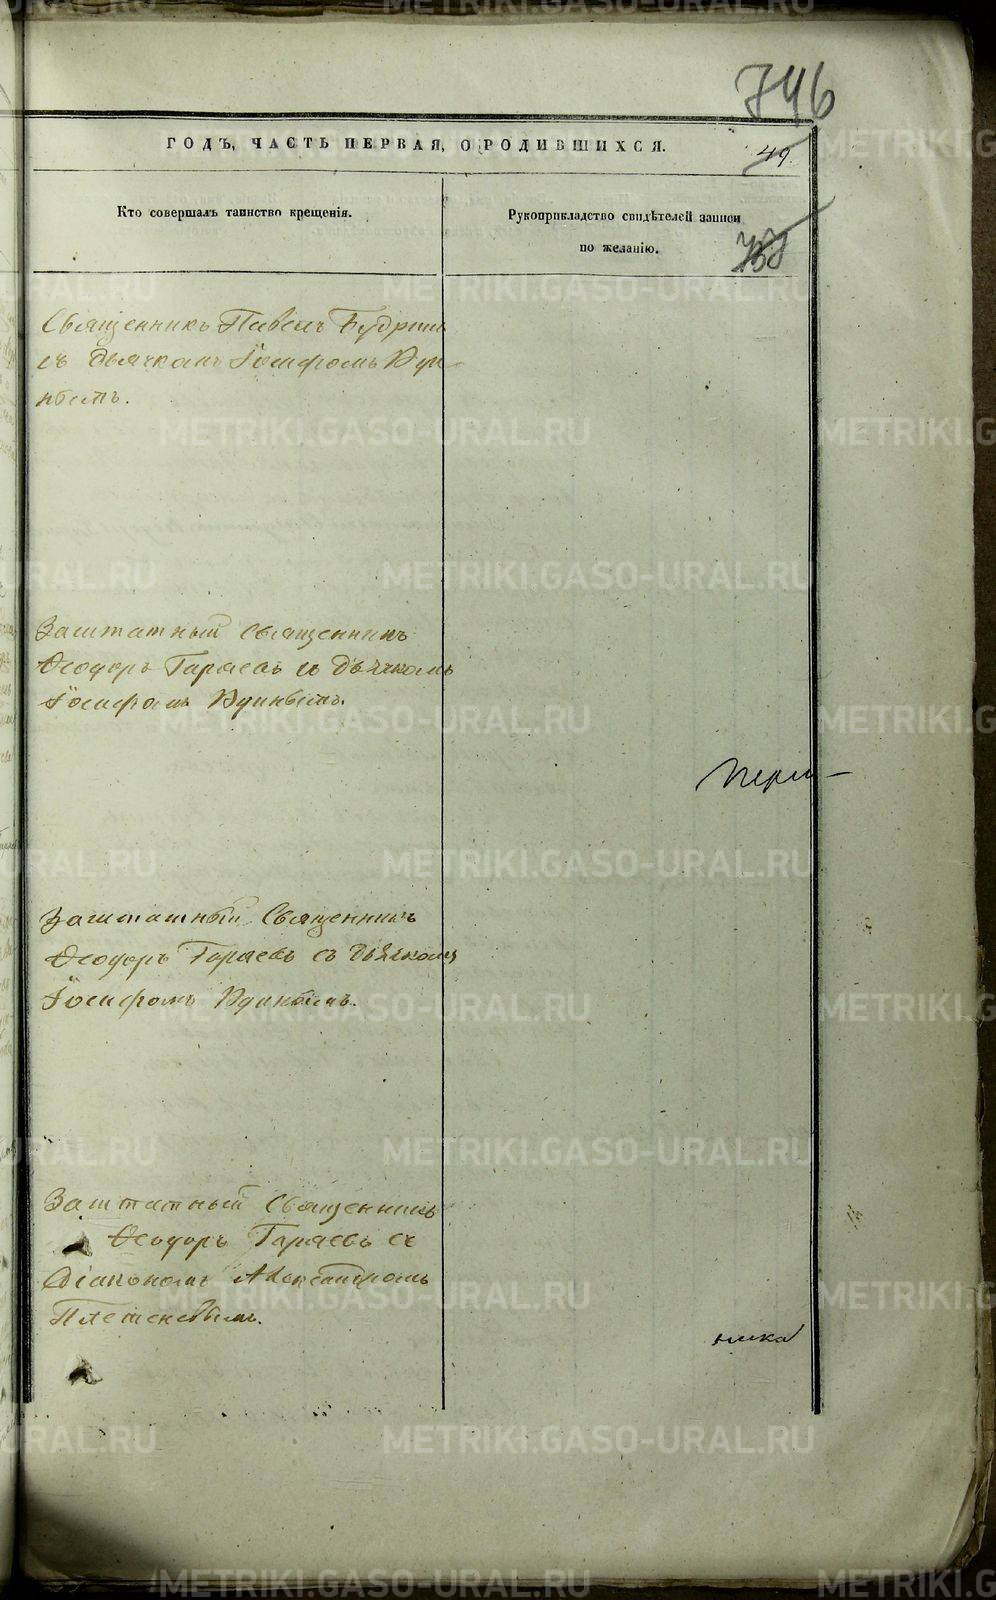 746
ГОДЪ, ЧАСТЬ ПЕРВАЯ, О РОДИВШИХСЯ.
49.
Кто совершалъ таинство крещенія.
Рукоприкладство свидѣтелей записи
по желанію.
Священникъ Павелъ
съ дьячкомъ Іосифомъ
Заштатный священникъ
Ѳеодоръ Гаряевъ съ дьячкомъ
Іосифомъ
Заштатный Священникъ
Ѳеодоръ Гаряевъ съ дьячкомъ
Іосифомъ
Заштатный Священникъ
Ѳеодоръ Гаряевъ съ
Діакономъ Александромъ
Плетеневымъ.
METRIKI.GASO-URAL.RU